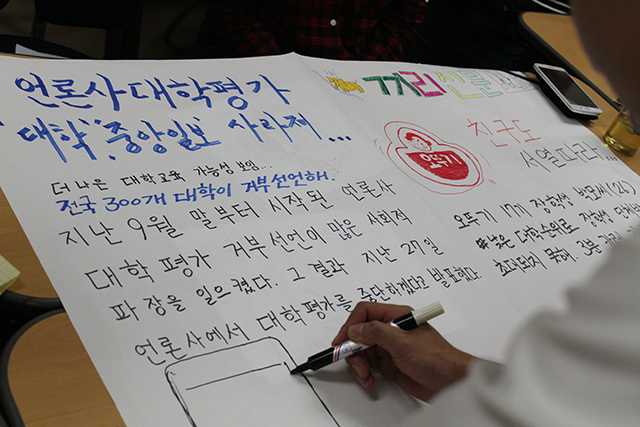 언론사 대학평가
'대학' 중앙일보 사라져...
더 나은 대학교육 가능성 보인...
전국 300개 대학이 거부선언해.
지난 9월 말부터 시작된 언론사
대학 평가 거부선언이 많은 사회적
파장을 일으켰다. 그 결과 지난 27일
언론사에서 대학평가를 중단하겠다고 발표했다.
거리신문
친구도
서열따라...
오뚜기
오뚜기 17기 장현성
낮은 대학순위로 장현성
초대되지 못해.